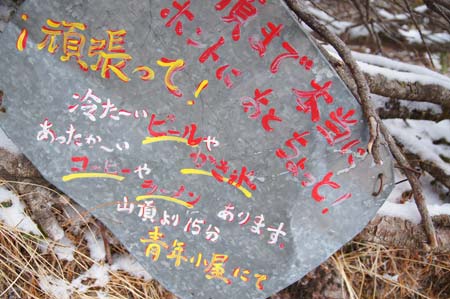 頂まで本当に
ホントにあとちょっと!
頑張って!
冷た〜いビールやかき氷
あったか〜いコーヒーやラーメンあります。
山頂より15分
青年小屋にて